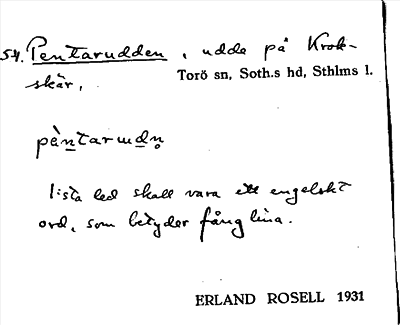 54. Pentarudden, udde på Krok-
Torö sn, Soth.s hd, Sthlms l.
skär.
pèntarudn̥
1:sta led skall vara ett engelskt
ord, som betyder fånglina.
ERLAND ROSELL 1931